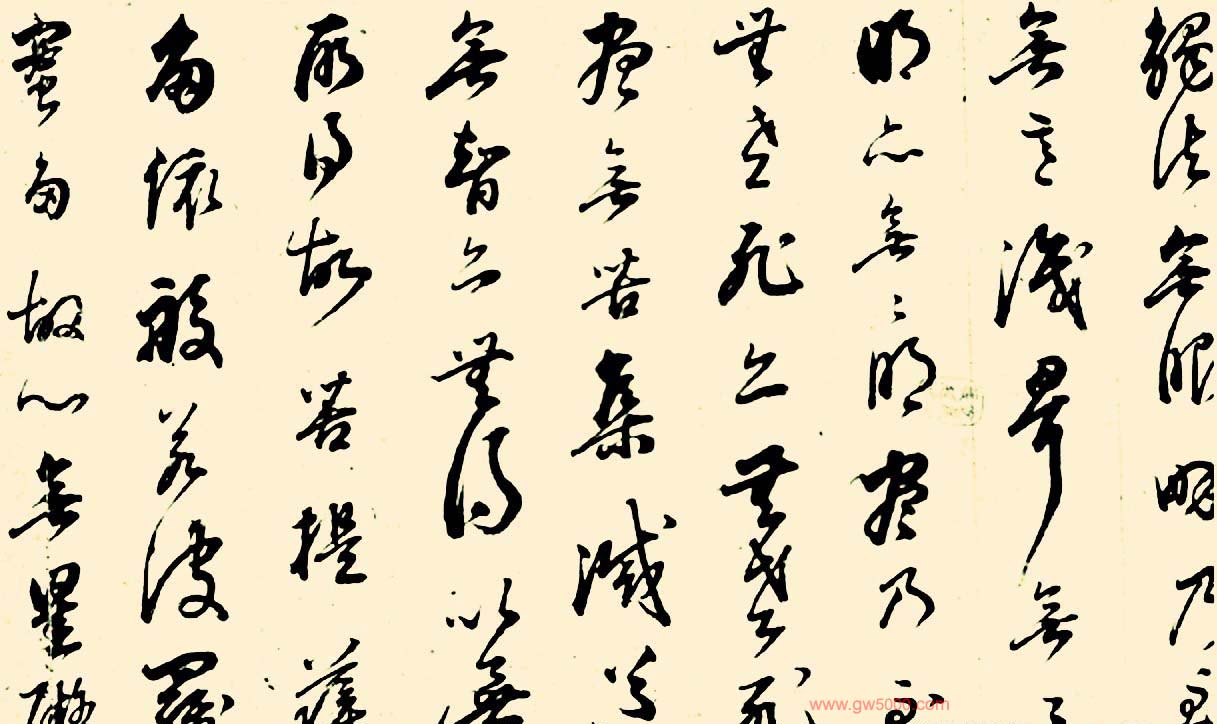 觸法無眼界乃至
無意識界無
明亦無無明盡乃至
無老死亦無老死
盡無苦集滅道
無智亦無得以無
所得故菩提薩
埵依般若波羅
蜜多故心無罣礙
www.gw5000.com